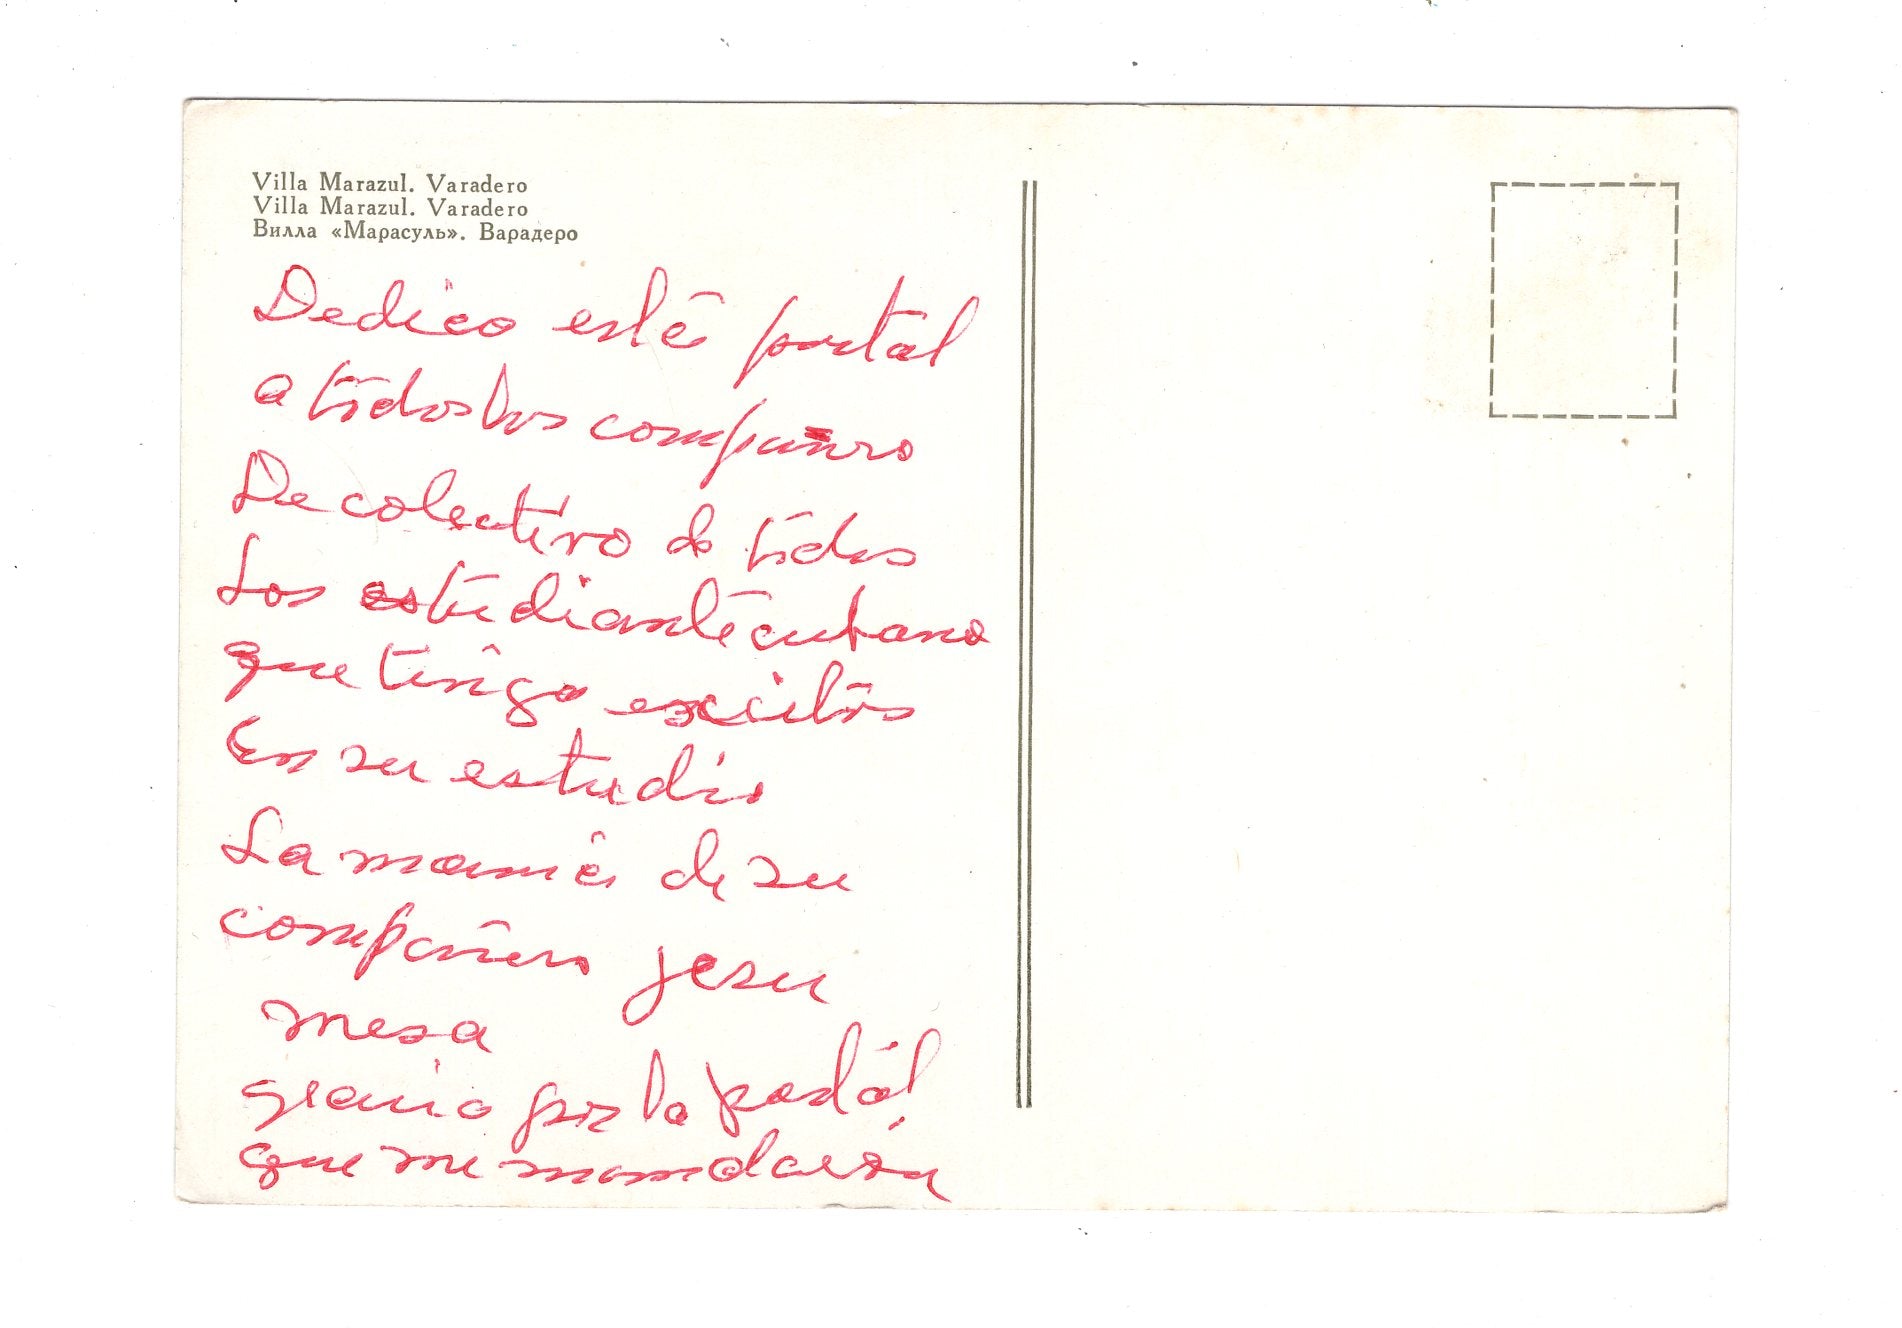 Villa Marazul. Varadero
Villa Marazul. Varadero
Вилла «Марасуль». Варадеро
Dedico esté portal
a todos los compañro
De colectivo de todos
Los estudianté cubano
que tengo excitos
En su estudio
La mamá de su
compañero jesu
mesa
gracia por la postál
que me mandarón